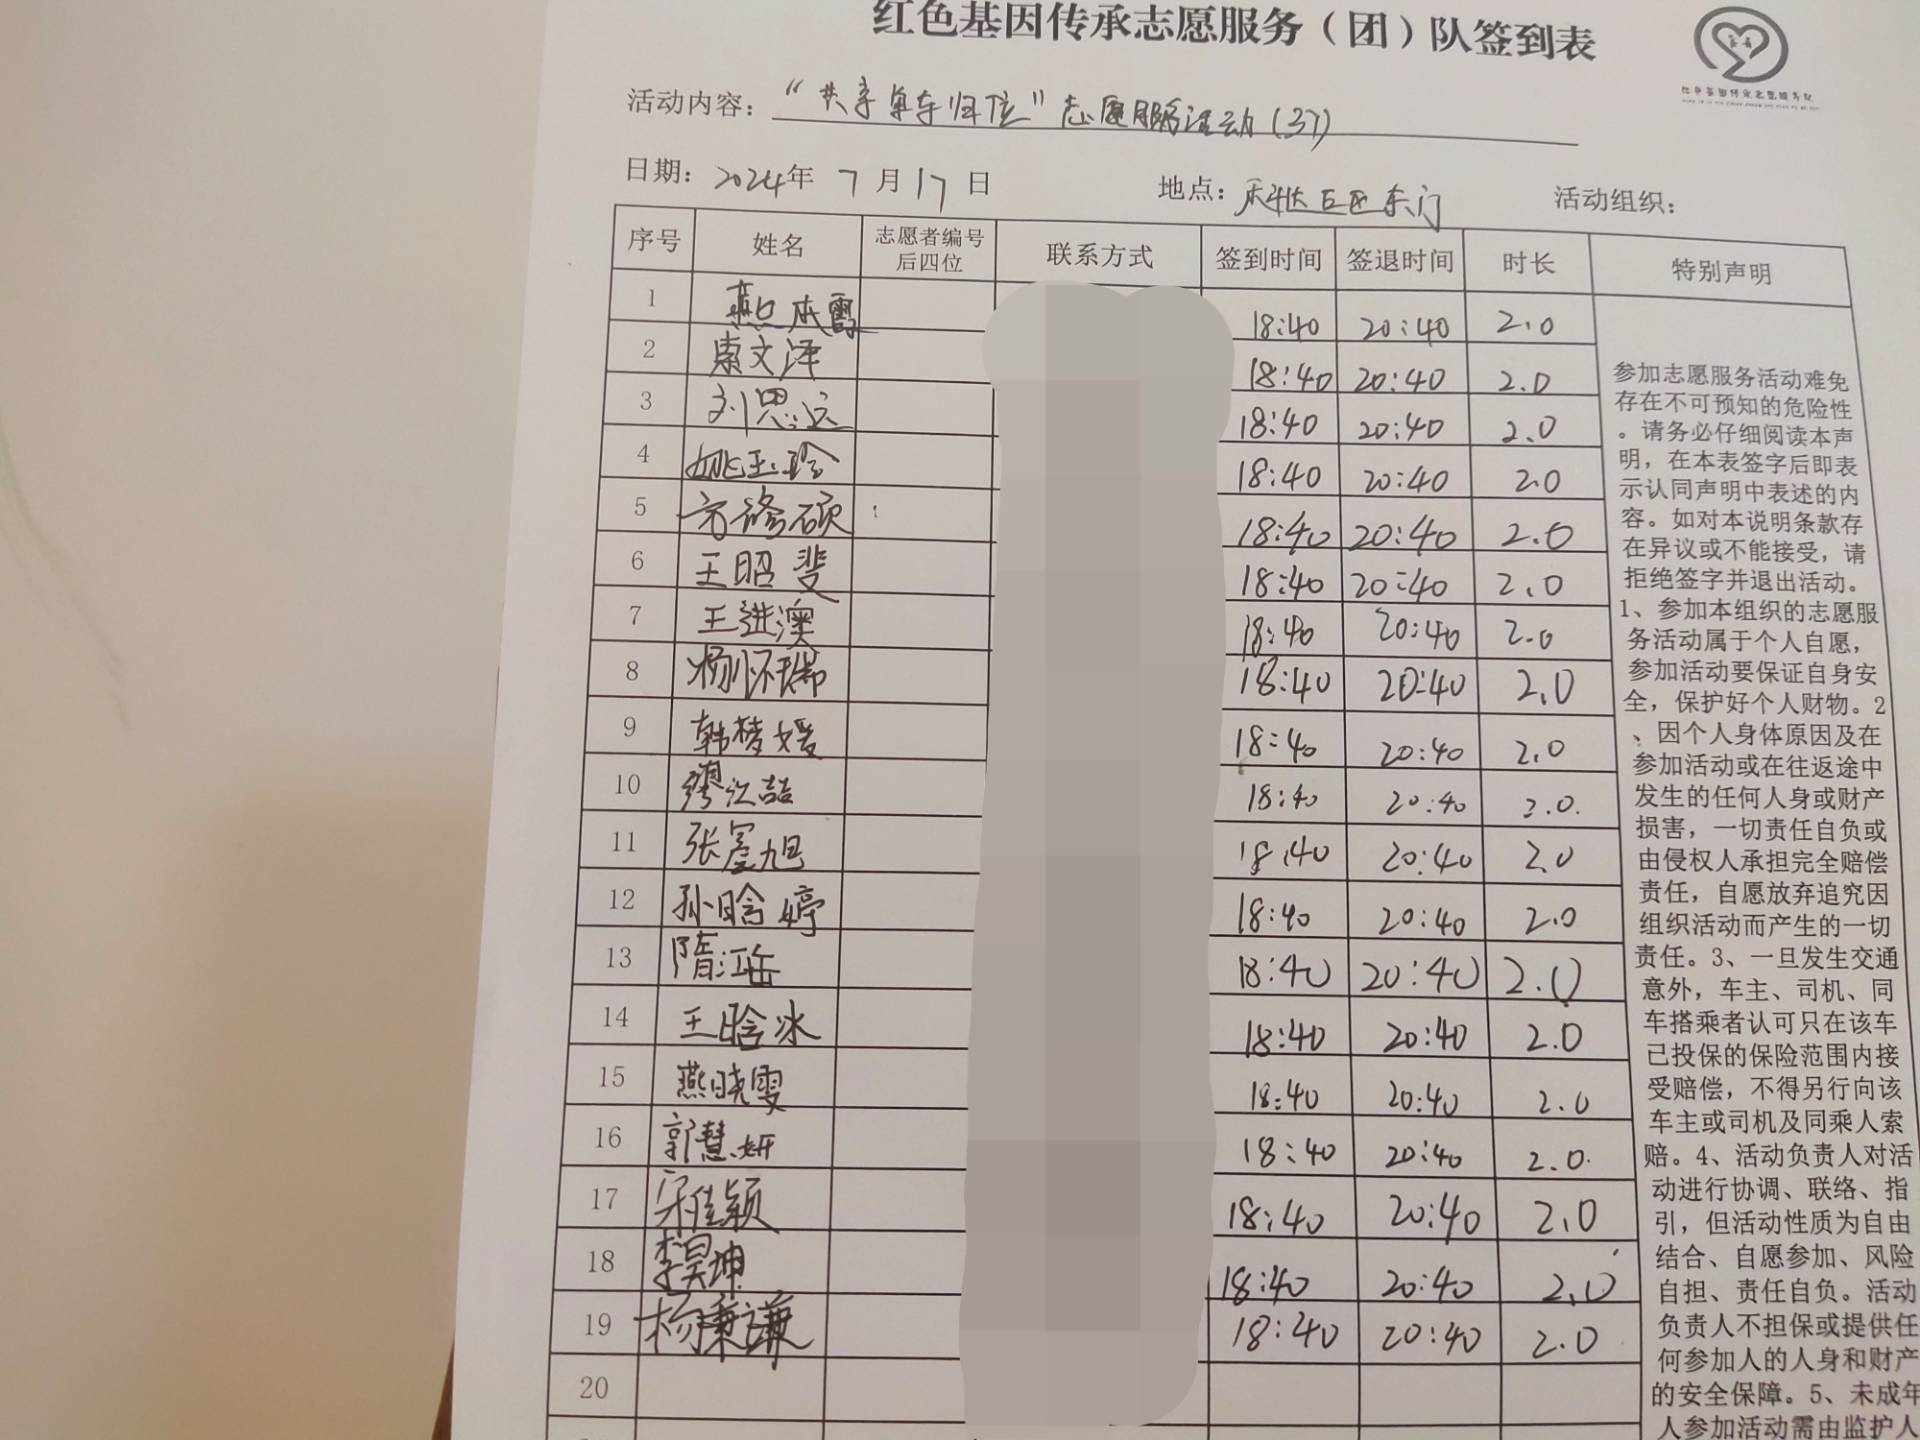 红色基因传承志愿服务（团）队签到表
活动内容：“共享单车归位”志愿服务活动(37)
日期：2024年 7 月 17 日 地点： 东门 活动组织：
序号 姓名 志愿者编号后四位 联系方式 签到时间 签退时间 时长 特别声明
1 18:40 20:40 2.0
2 索文泽 18:40 20:40 2.0
3 刘思远 18:40 20:40 2.0
4 姚玉珍 18:40 20:40 2.0
5 方修硕 18:40 20:40 2.0
6 王昭斐 18:40 20:40 2.0
7 王进澳 18:40 20:40 2.0
8 杨怀瑞 18:40 20:40 2.0
9 韩梦媛 18:40 20:40 2.0
10 缪江喆 18:40 20:40 2.0.
11 张 旭 18:40 20:40 2.0
12 孙晗婷 18:40 20:40 2.0
13 隋江岳 18:40 20:40 2.0
14 王晗冰 18:40 20:40 2.0
15 燕晓雯 18:40 20:40 2.0
16 郭慧妍 18:40 20:40 2.0.
17 宋佳颖 18:40 20:40 2.0
18 李昊坤 18:40 20:40 2.0
19 杨秉谦 18:40 20:40 2.0
20
参加志愿服务活动难免
存在不可预知的危险性
。请务必仔细阅读本声
明，在本表签字后即表
示认同声明中表述的内
容。如对本说明条款存
在异议或不能接受，请
拒绝签字并退出活动。
1、参加本组织的志愿服
务活动属于个人自愿，
参加活动要保证自身安
全，保护好个人财物。2
、因个人身体原因及在
参加活动或在往返途中
发生的任何人身或财产
损害，一切责任自负或
由侵权人承担完全赔偿
责任，自愿放弃追究因
组织活动而产生的一切
责任。3、一旦发生交通
意外，车主、司机、同
车搭乘者认可只在该车
已投保的保险范围内接
受赔偿，不得另行向该
车主或司机及同乘人索
赔。4、活动负责人对活
动进行协调、联络、指
引，但活动性质为自由
结合、自愿参加、风险
自担、责任自负。活动
负责人不担保或提供任
何参加人的人身和财产
的安全保障。5、未成年
人参加活动需由监护人